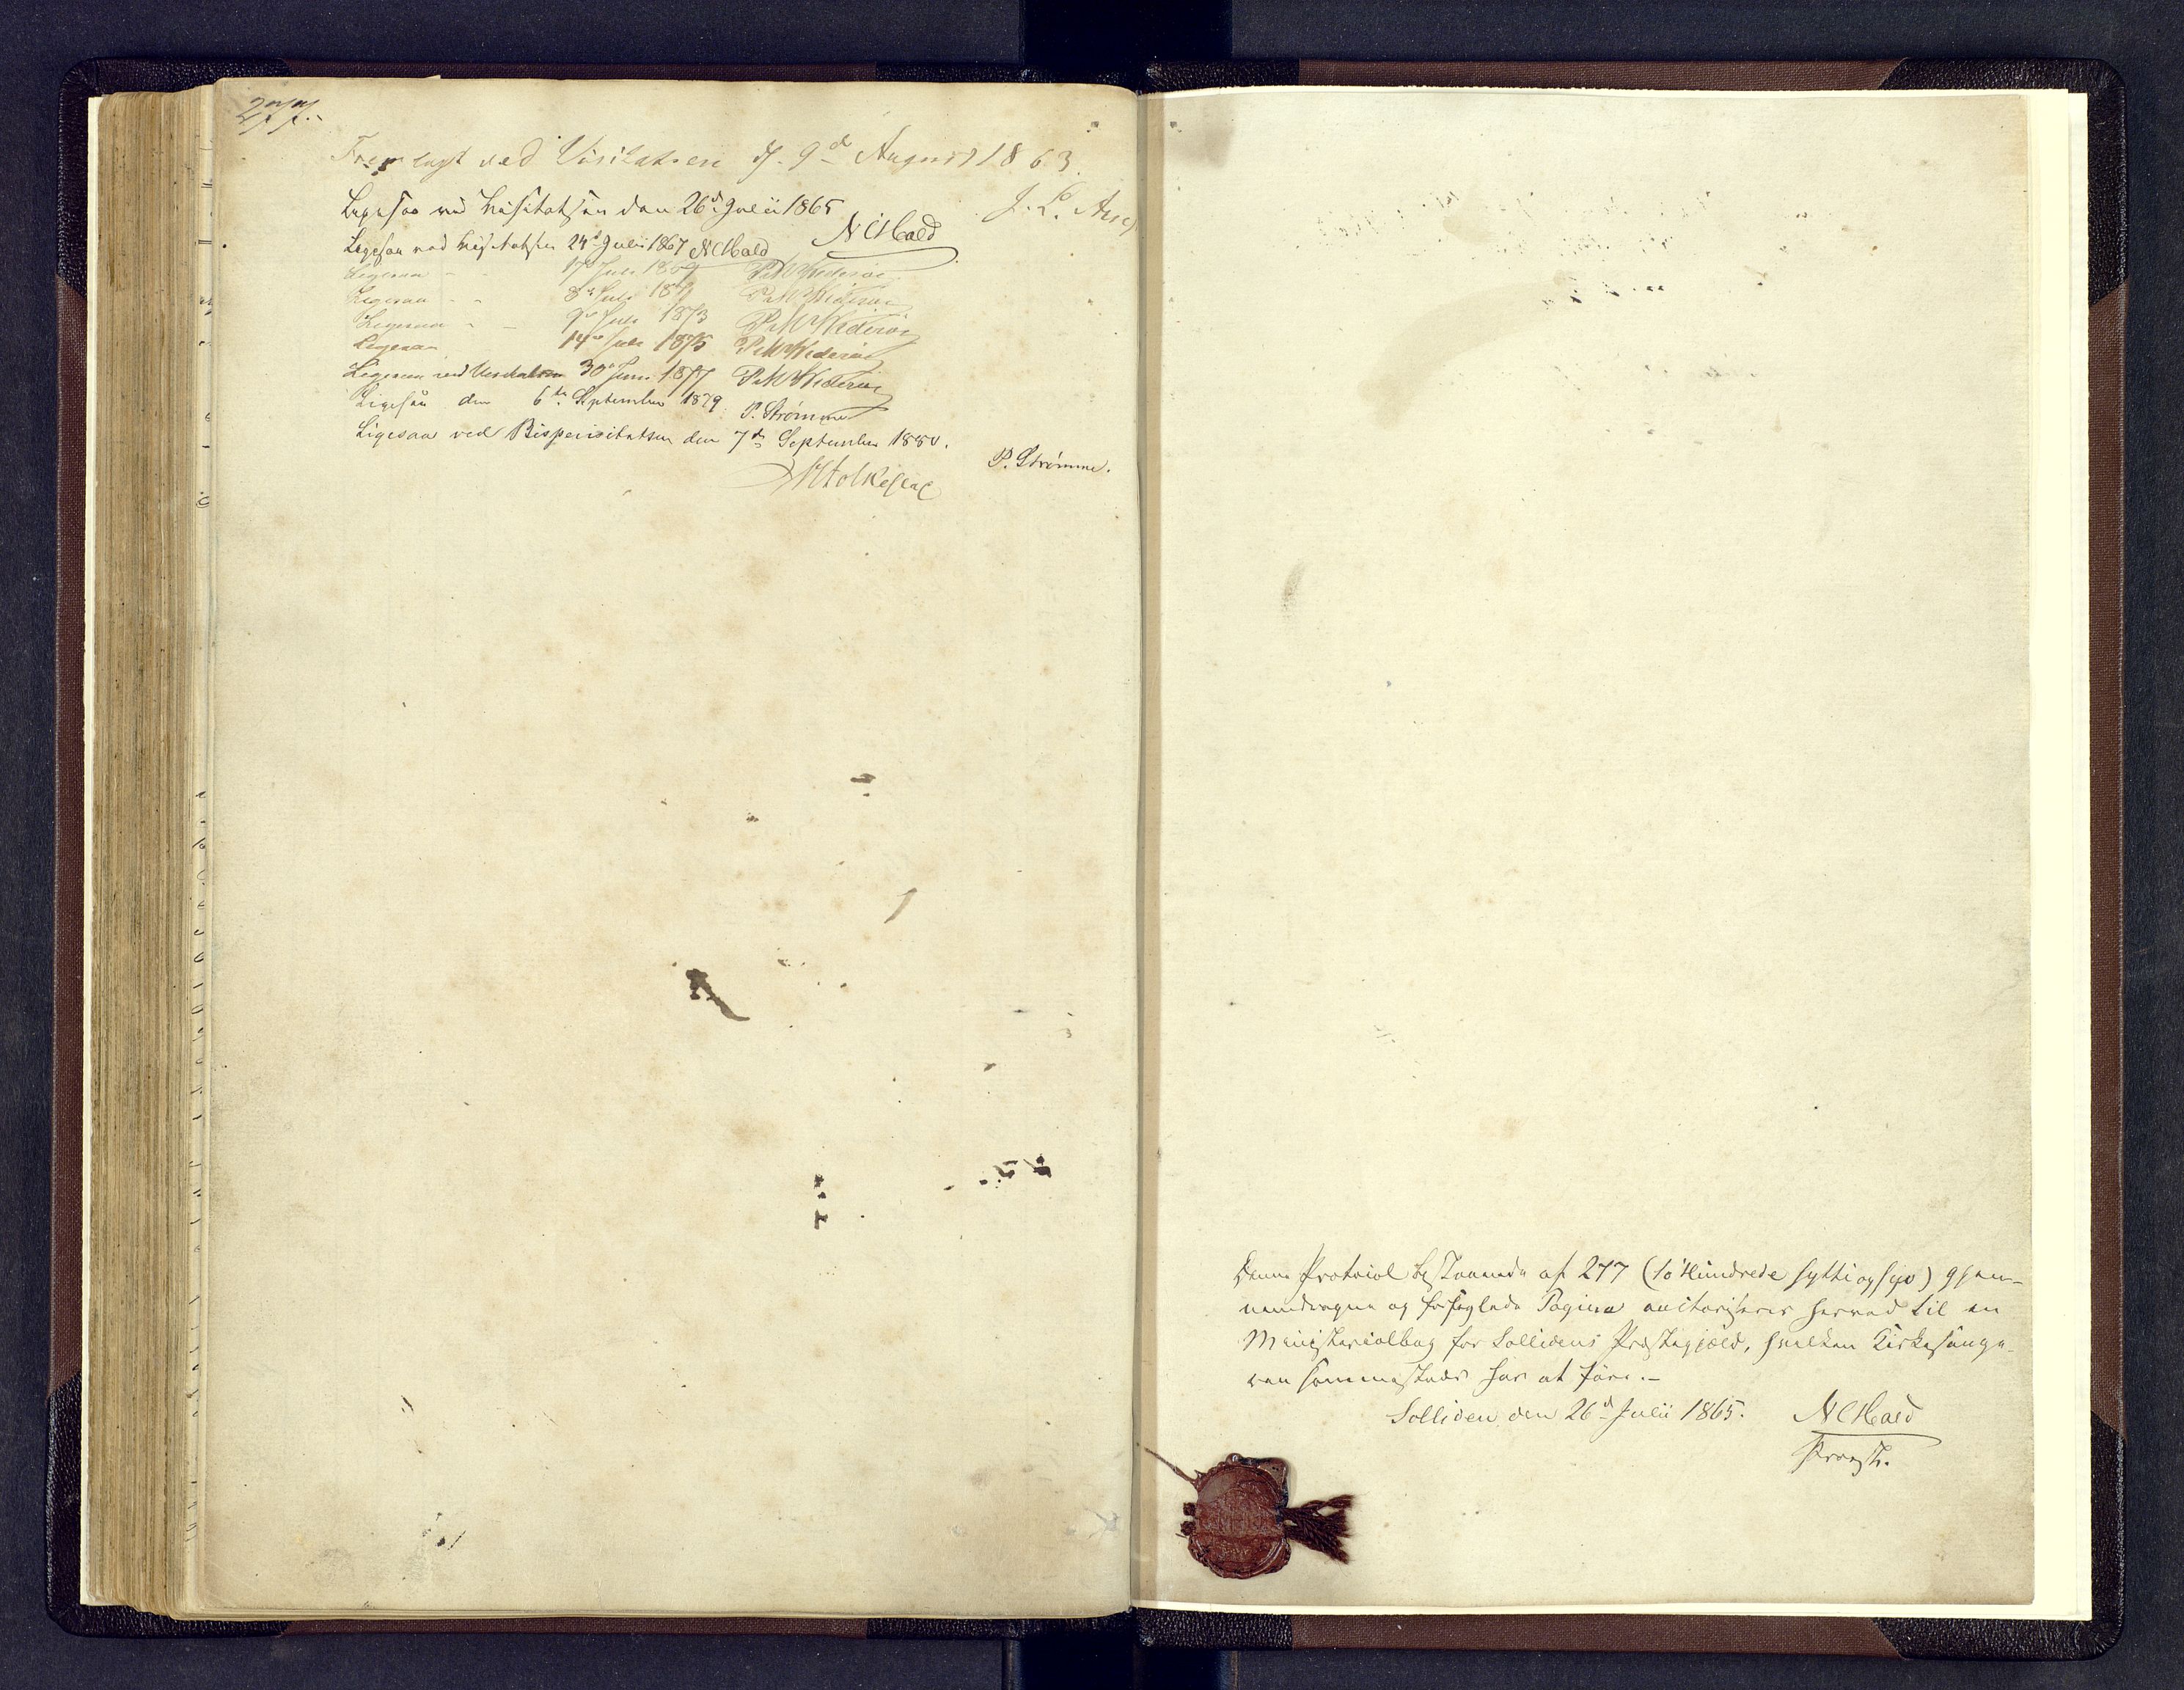 277.
Fremlagt ved Visitatsen d. 9d August 1863.
J. L. 
Ligesaa ved Visitatsen den 26d Julii 1865
N C Hald
Ligesaa ved Visitatsen 24d Julii 1867 N C Hald
Ligesaa - - 17de Juli 1869
Ligesaa - - 8de Juli 1871
Ligesaa - - 9de Juli 1873
Ligesaa 14de Juli 1875
Ligesaa ved Visitatsen 30de Juni 1877
Ligesaa den 6te September 1879. P. Strømme
Ligesaa ved Bispevisitatsen den 7de September 1880.
P. Strømme.
Denne Protocol bestaaende af 277 (to Hundrede sytti og syv) gjen-
nemdragne og forseglede Pagina auctoriseres herved til en
Ministerialbog for Sollidens Præstegjæld, hvilken Kirkesange-
ren sammesteds har at føre.-
Solliden den 26d Julii 1865. N C Hald
Provst.